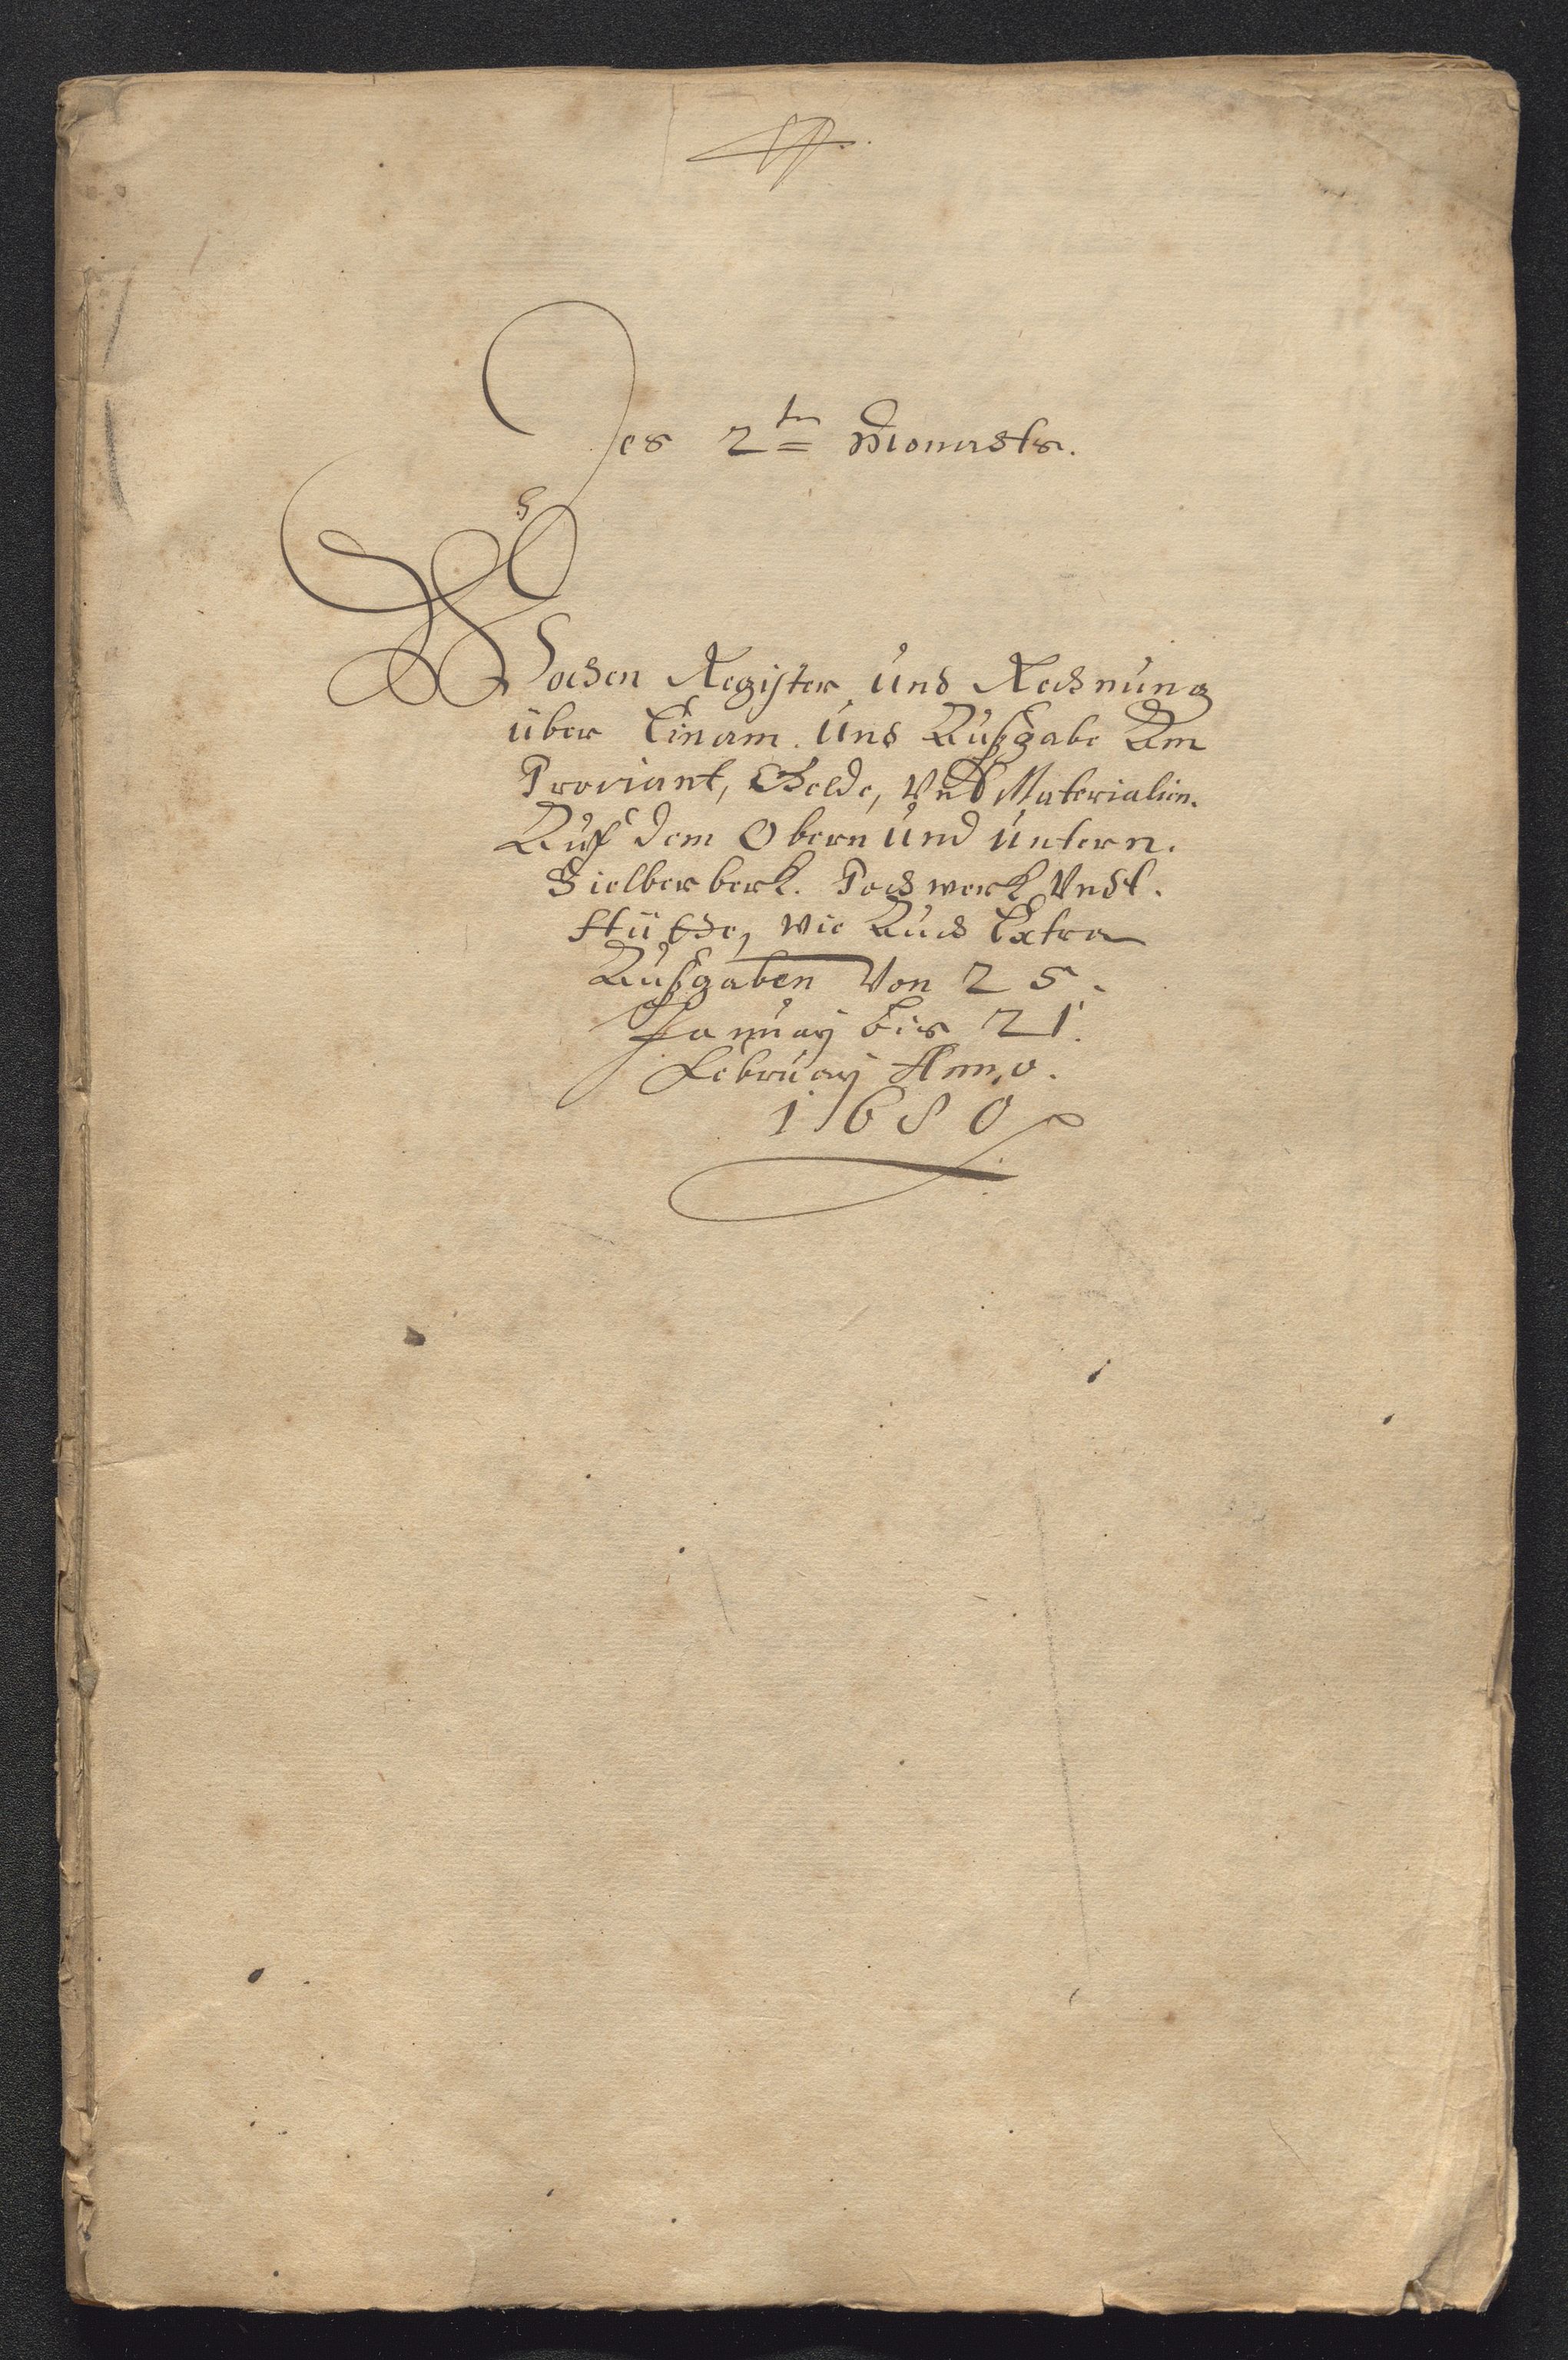 Des 2ten Monachts.
Wochen Register und Rechnung
über Einam. und Außgabe Am
Proviant, Gelde, Vnd Materialien.
Auf dem Obern und untern.
Sielberberk. Pochwerk Vndt.
Hütte, wie Auch Extra
Außgaben Von 25.
Januarÿ bis 21.
Februarÿ Anno.
1680